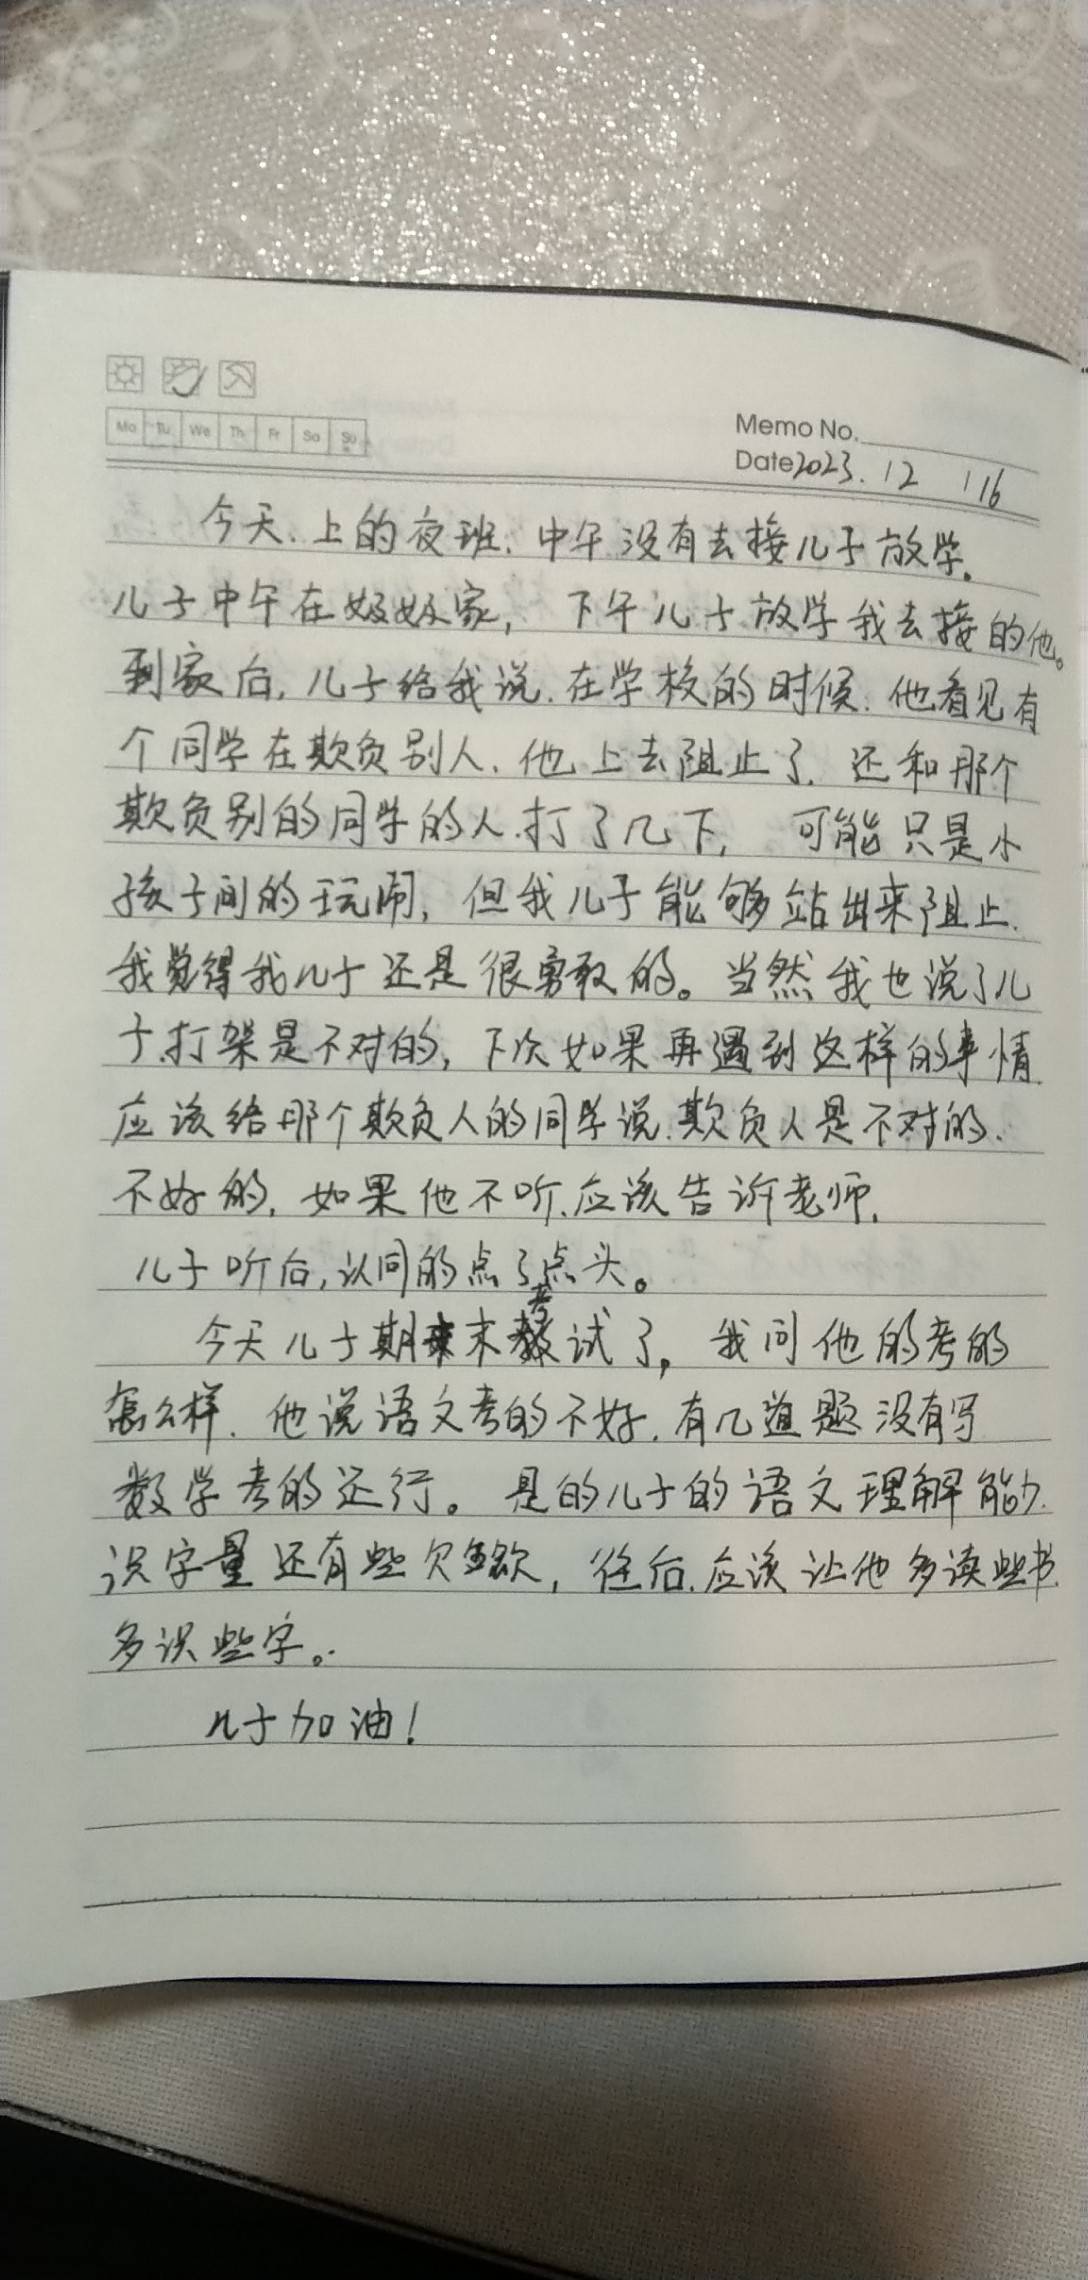 Mo Tu We Th Fr Sa Su
Memo No.
Date 2023.12 16
今天.上的夜班.中午没有去接儿子放学。
儿子中午在奶奶家,下午儿子放学我去接的他。
到家后,儿子给我说.在学校的时候.他看见有
个同学在欺负别人.他上去阻止了.还和那个
欺负别的同学的人.打了几下,可能只是小
孩子间的玩闹,但我儿子能够站出来阻止.
我觉得我儿子还是很勇敢的。当然我也说了儿
子.打架是不对的,下次如果再遇到这样的事情.
应该给那个欺负人的同学说.欺负人是不对的.
不好的,如果他不听.应该告诉老师.
儿子听后,认同的点了点头。
今天儿子期末考试了,我问他的考的
怎么样.他说语文考的不好.有几道题没有写
数学考的还行。是的儿子的语文理解能力.
识字量还有些欠缺,往后.应该让他多读些书.
多识些字。
儿子加油!